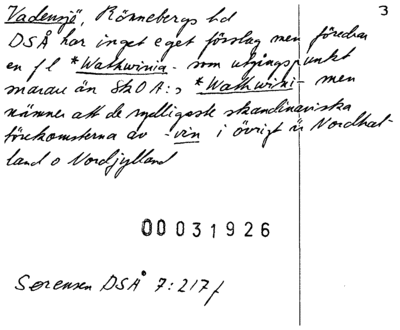 3
Vadensjö, Rönnebergs hd
DSÅ har inget eget förslag men föredrar
en fl *Wathwinia- som utgångspunkt
snarare än SkOA:s *Wathwini- men
nämner att de sydligaste skandinaviska
förekomsterna av -vin i övrigt är Nordhal-
land o Nordjylland
00 031926
Sørensen DSÅ 7:217f